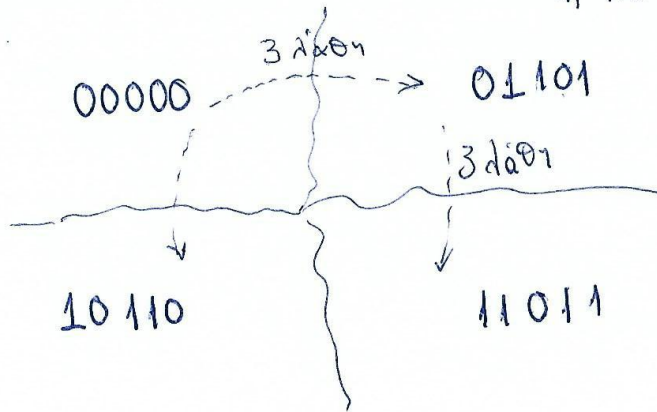 3 λάθη
00000 01101
3 λάθη
10110 11011